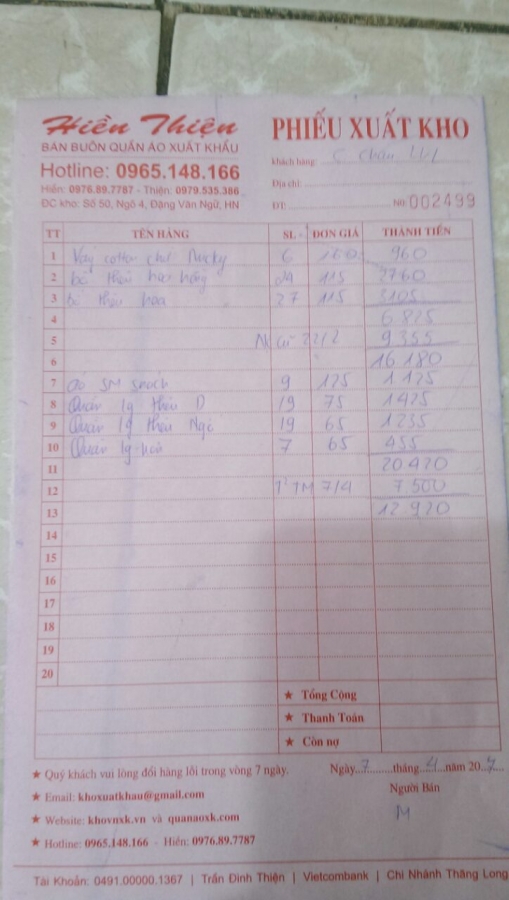 Hiền Thiện
BÁN BUÔN QUẦN ÁO XUẤT KHẨU
Hotline: 0965.148.166
Hiền: 0976.89.7787 - Thiện: 0979.535.386
ĐC kho: Số 50, Ngõ 4, Đặng Văn Ngữ, HN
PHIẾU XUẤT KHO
Khách hàng: C Châu
Địa chỉ:
ĐT: NO: 002499
TT TÊN HÀNG SL ĐƠN GIÁ THÀNH TIỀN
1 Váy cotton Mucky 6 160 960
2 bộ thêu hoa hồng 24 115 2760
3 bộ thêu hoa 27 115 3105
4 6 825
5 NK cũ 22/2 9 355
6 16 180
7 áo SM 9 125 1125
8 Quần lg thêu D 19 75 1425
9 Quần lg thêu Ngố 19 65 1235
10 Quần lg hoa 7 65 455
11 20 420
12 TM 7/4 7 500
13 12 920
14
15
16
17
18
19
20
★ Tổng Cộng
★ Thanh Toán
★ Còn nợ
★ Quý khách vui lòng đổi hàng lỗi trong vòng 7 ngày. Ngày 7 tháng 4 năm 20
★ Email: khoxuatkhau@gmail.com Người Bán
★ Website: khovnxk.vn và quanaoxk.com M
★ Hotline: 0965.148.166 - Hiền: 0976.89.7787
Tài Khoản: 0491.00000.1367 | Trần Đình Thiện | Vietcombank | Chi Nhánh Thăng Long